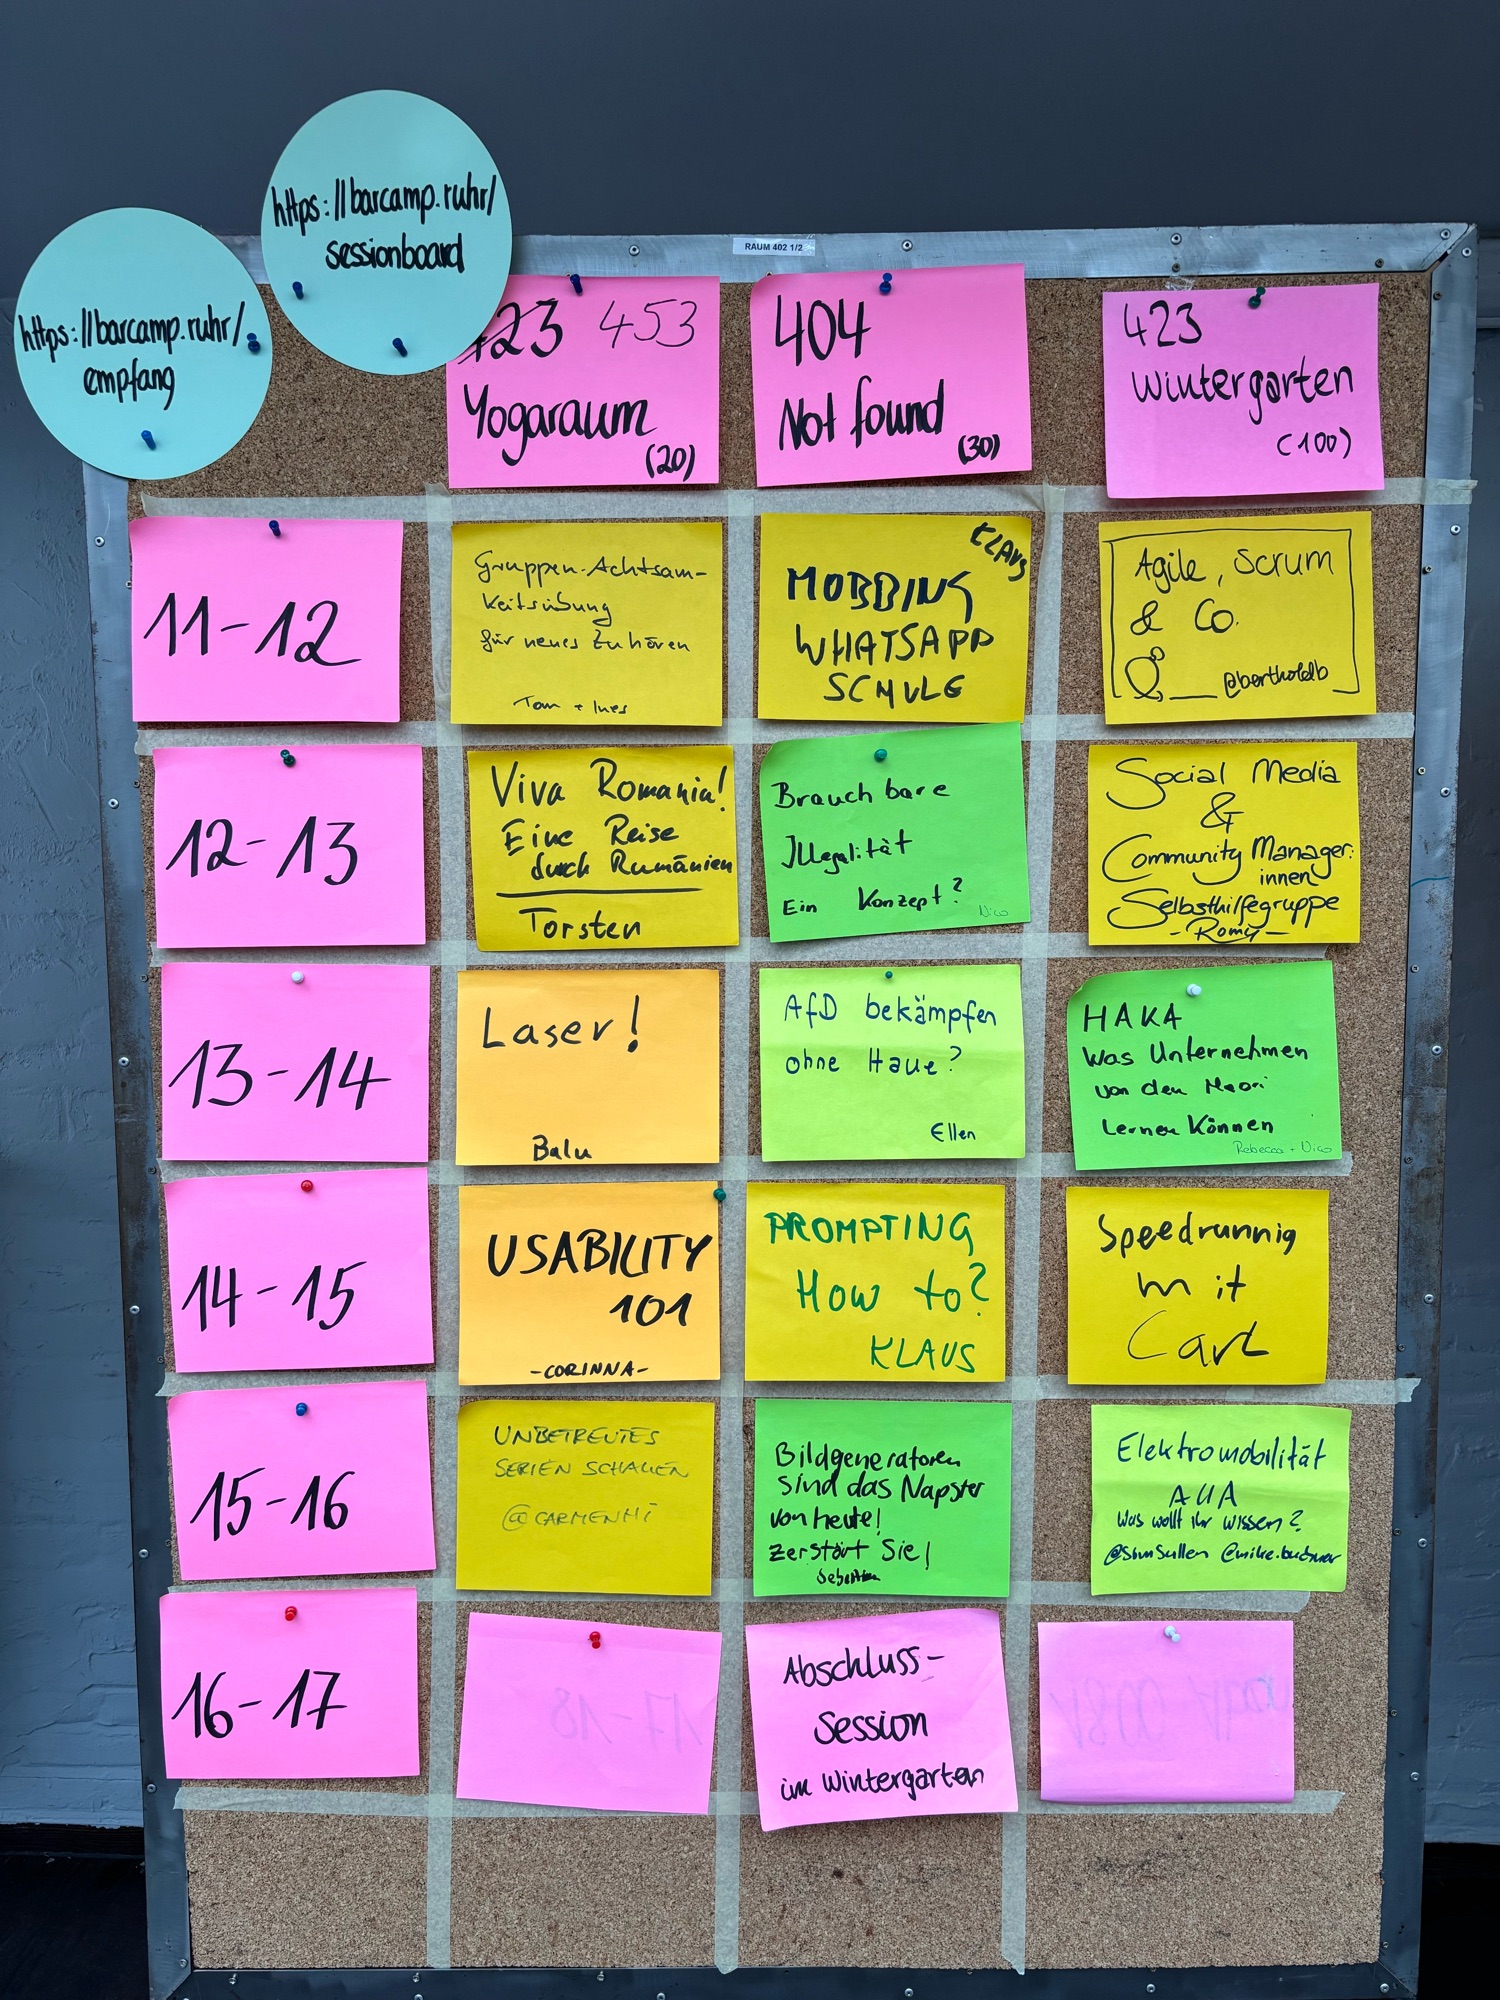 https://barcamp.ruhr/
sessionboard
https://barcamp.ruhr/
empfang
RAUM 402 1/2
423 453
Yogaraum
(20)
404
Not found
(30)
423
Wintergarten
(100)
11-12
Gruppen-Achtsam-
keitsübung
für neues Zuhören
Tom + Ines
KLAUS
MOBBING
WHATSAPP
SCHULE
Agile, Scrum
& Co.
@bertholdb
12-13
Viva Romania!
Eine Reise
durch Rumänien
Torsten
Brauchbare
Illegalität
Ein Konzept?
Nico
Social Media
&
Community Manager:
innen
Selbsthilfegruppe
-Romy-
13-14
Laser!
Balu
AfD bekämpfen
ohne Haue?
Ellen
HAKA
Was Unternehmen
von den Maori
lernen können
Rebecca + Nico
14-15
USABILITY
101
-CORINNA-
PROMPTING
HOW to?
KLAUS
Speedrunnig
mit
Carl
15-16
UNBETREUTES
SERIEN SCHAUEN
@CARMENHI
Bildgeneratoren
sind das Napster
von heute!
Zerstört Sie!
Sebastian
Elektromobilität
AUA
Was wollt ihr wissen?
16-17
17-18
Abschluss-
Session
im Wintergarten